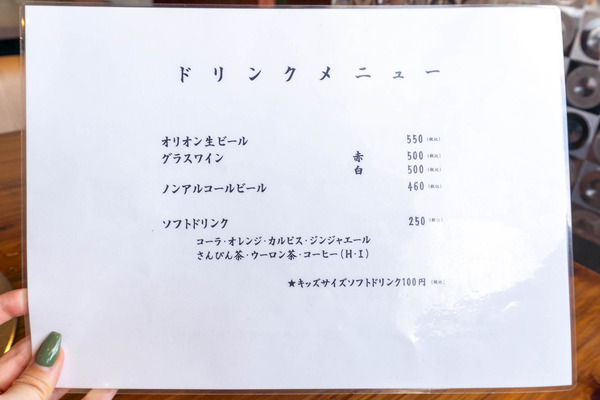 ドリンクメニュー
オリオン生ビール 550(税込)
グラスワイン 赤 500(税込)
白 500(税込)
ノンアルコールビール 460(税込)
ソフトドリンク 250(税込)
コーラ・オレンジ・カルピス・ジンジャエール
さんぴん茶・ウーロン茶・コーヒー(H・I)
★キッズサイズソフトドリンク100円(税込)